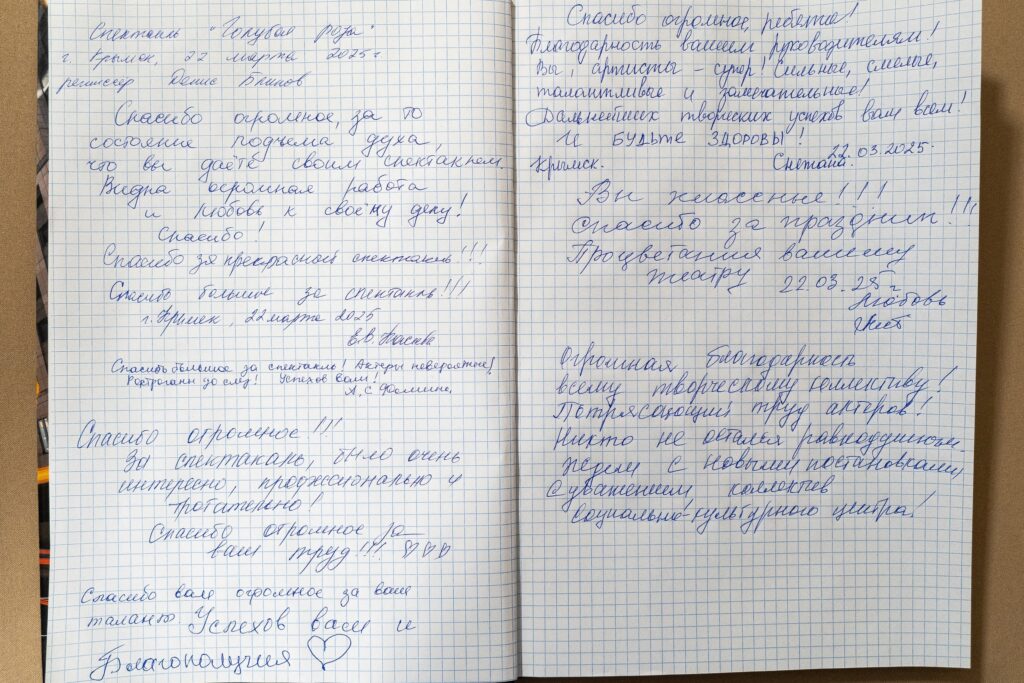 Спектакль "Голубая роза"
г. Крымск, 22 марта 2025г
режиссер Денис Блинов
Спасибо огромное, за то
состояние подъема духа,
что вы даёте своим спектаклем.
Видна огромная работа
и любовь к своему делу!
Спасибо!
Спасибо за прекрасный спектакль!!!
Спасибо большое за спектакль!!!
г. Крымск, 22 марта 2025
Е.В.
Спасибо большое за спектакль! Актеры невероятные!
Растрогали до слез! Успехов вам!
А.С.
Спасибо огромное!!!
За спектакль, было очень
интересно, профессионально и
трогательно!
Спасибо огромное за
ваш труд!!! ♡♡♡
Спасибо вам огромное за ваш
талант Успехов вам и
Благополучия ♡
Спасибо огромное, ребята!
Благодарность вашем руководителям!
Вы, артисты – супер! Сильные, смелые,
талантливые и замечательные!
Дальнейших творческих успехов вам всем!
И БУДЬТЕ ЗДОРОВЫ!
Крымск. 22.03.2025.
Светлана.
Вы классные!!!
Спасибо за праздник!!!
Процветания вашему
театру 22.03.25г
Любовь
Огромная благодарность
всему творческому коллективу!
Потрясающий труд акторов!
Никто не остался равнодушным.
Ждем с новыми постановками,
С уважением, коллектив
социально-культурного центра!